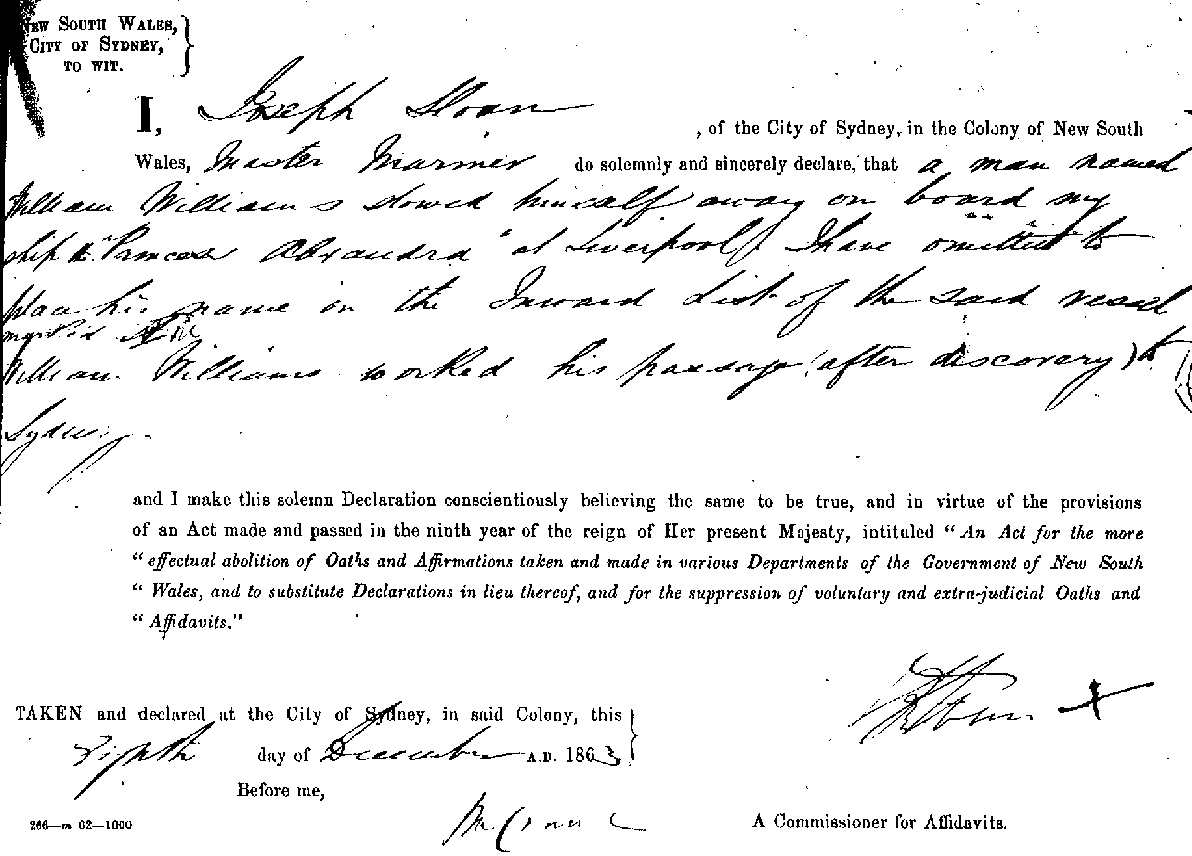 NEW SOUTH WALES,
CITY OF SYDNEY,
TO WIT.
I, Joseph Sloan , of the City of Sydney, in the Colony of New South
Wales, Master Mariner do solemnly and sincerely declare, that a man named
William Williams stowed himself away on board my
ship "Princess Alexandra" at Liverpool I have omitted to
place his name on the Inward List of the said vessel
William Williams worked his passage (after discovery) to
Sydney.
and I make this solemn Declaration conscientiously believing the same to be true, and in virtue of the provisions
of an Act made and passed in the ninth year of the reign of Her present Majesty, intituled "An Act for the more
"effectual abolition of Oaths and Affirmations taken and made in various Departments of the Government of New South
"Wales, and to substitute Declarations in lieu thereof, and for the suppression of voluntary and extra-judicial Oaths and
"Affidavits."
TAKEN and declared at the City of Sydney, in said Colony, this
day of December A.D. 1863
Before me,
266—m 62—1000
A Commissioner for Affidavits.